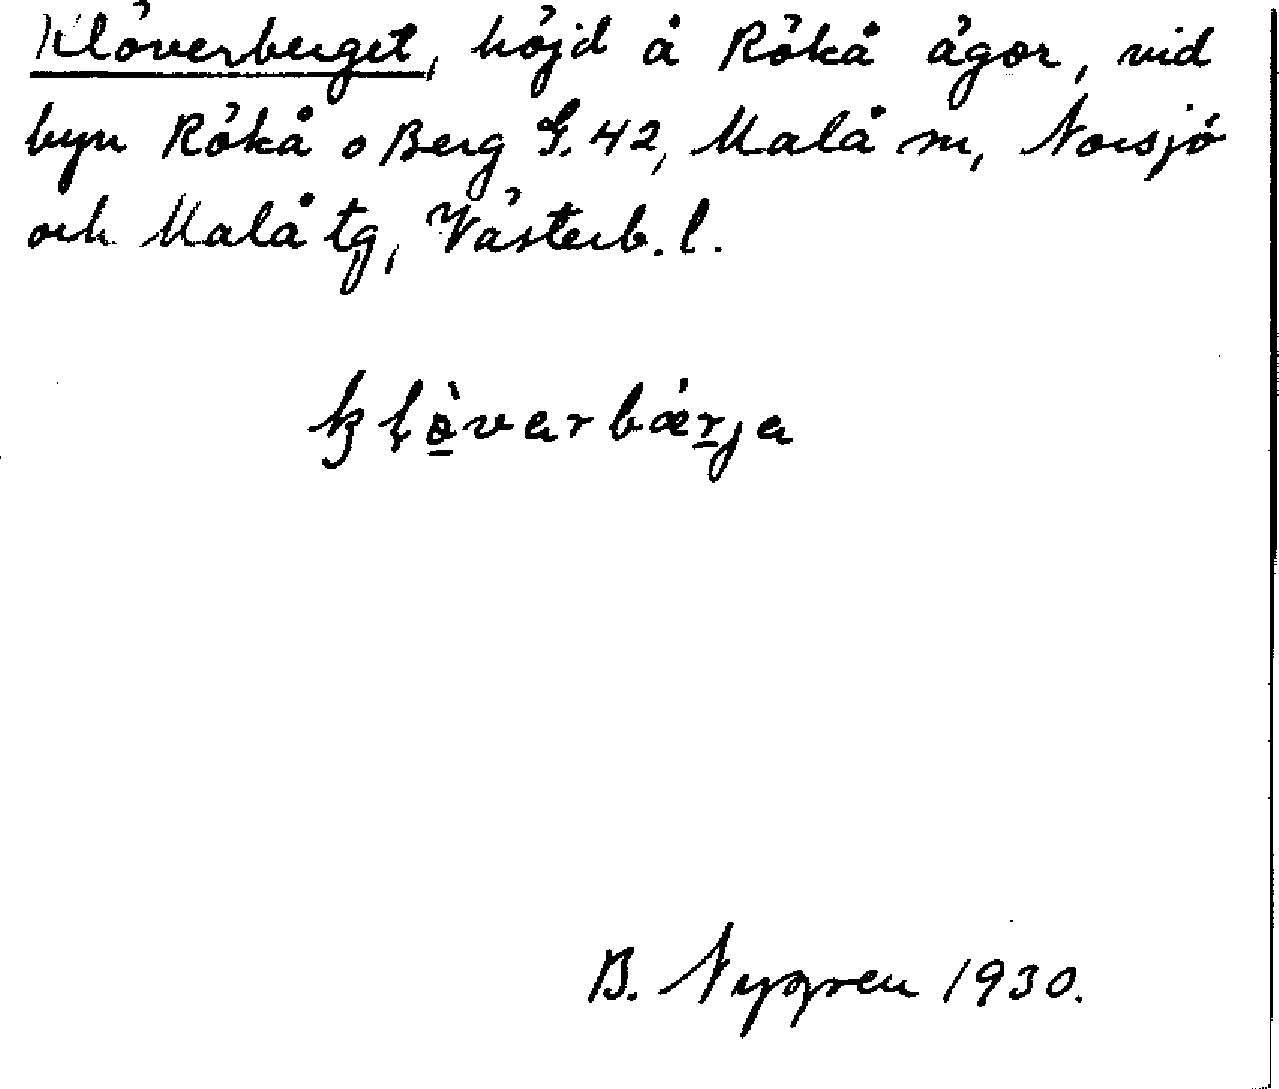 Klöverberget, höjd å Rökå ägor, vid
byn Rökå o Berg G. 42, Malå sn, Norsjö
och Malå tg, Västerb. l.
B. Nygren 1930.